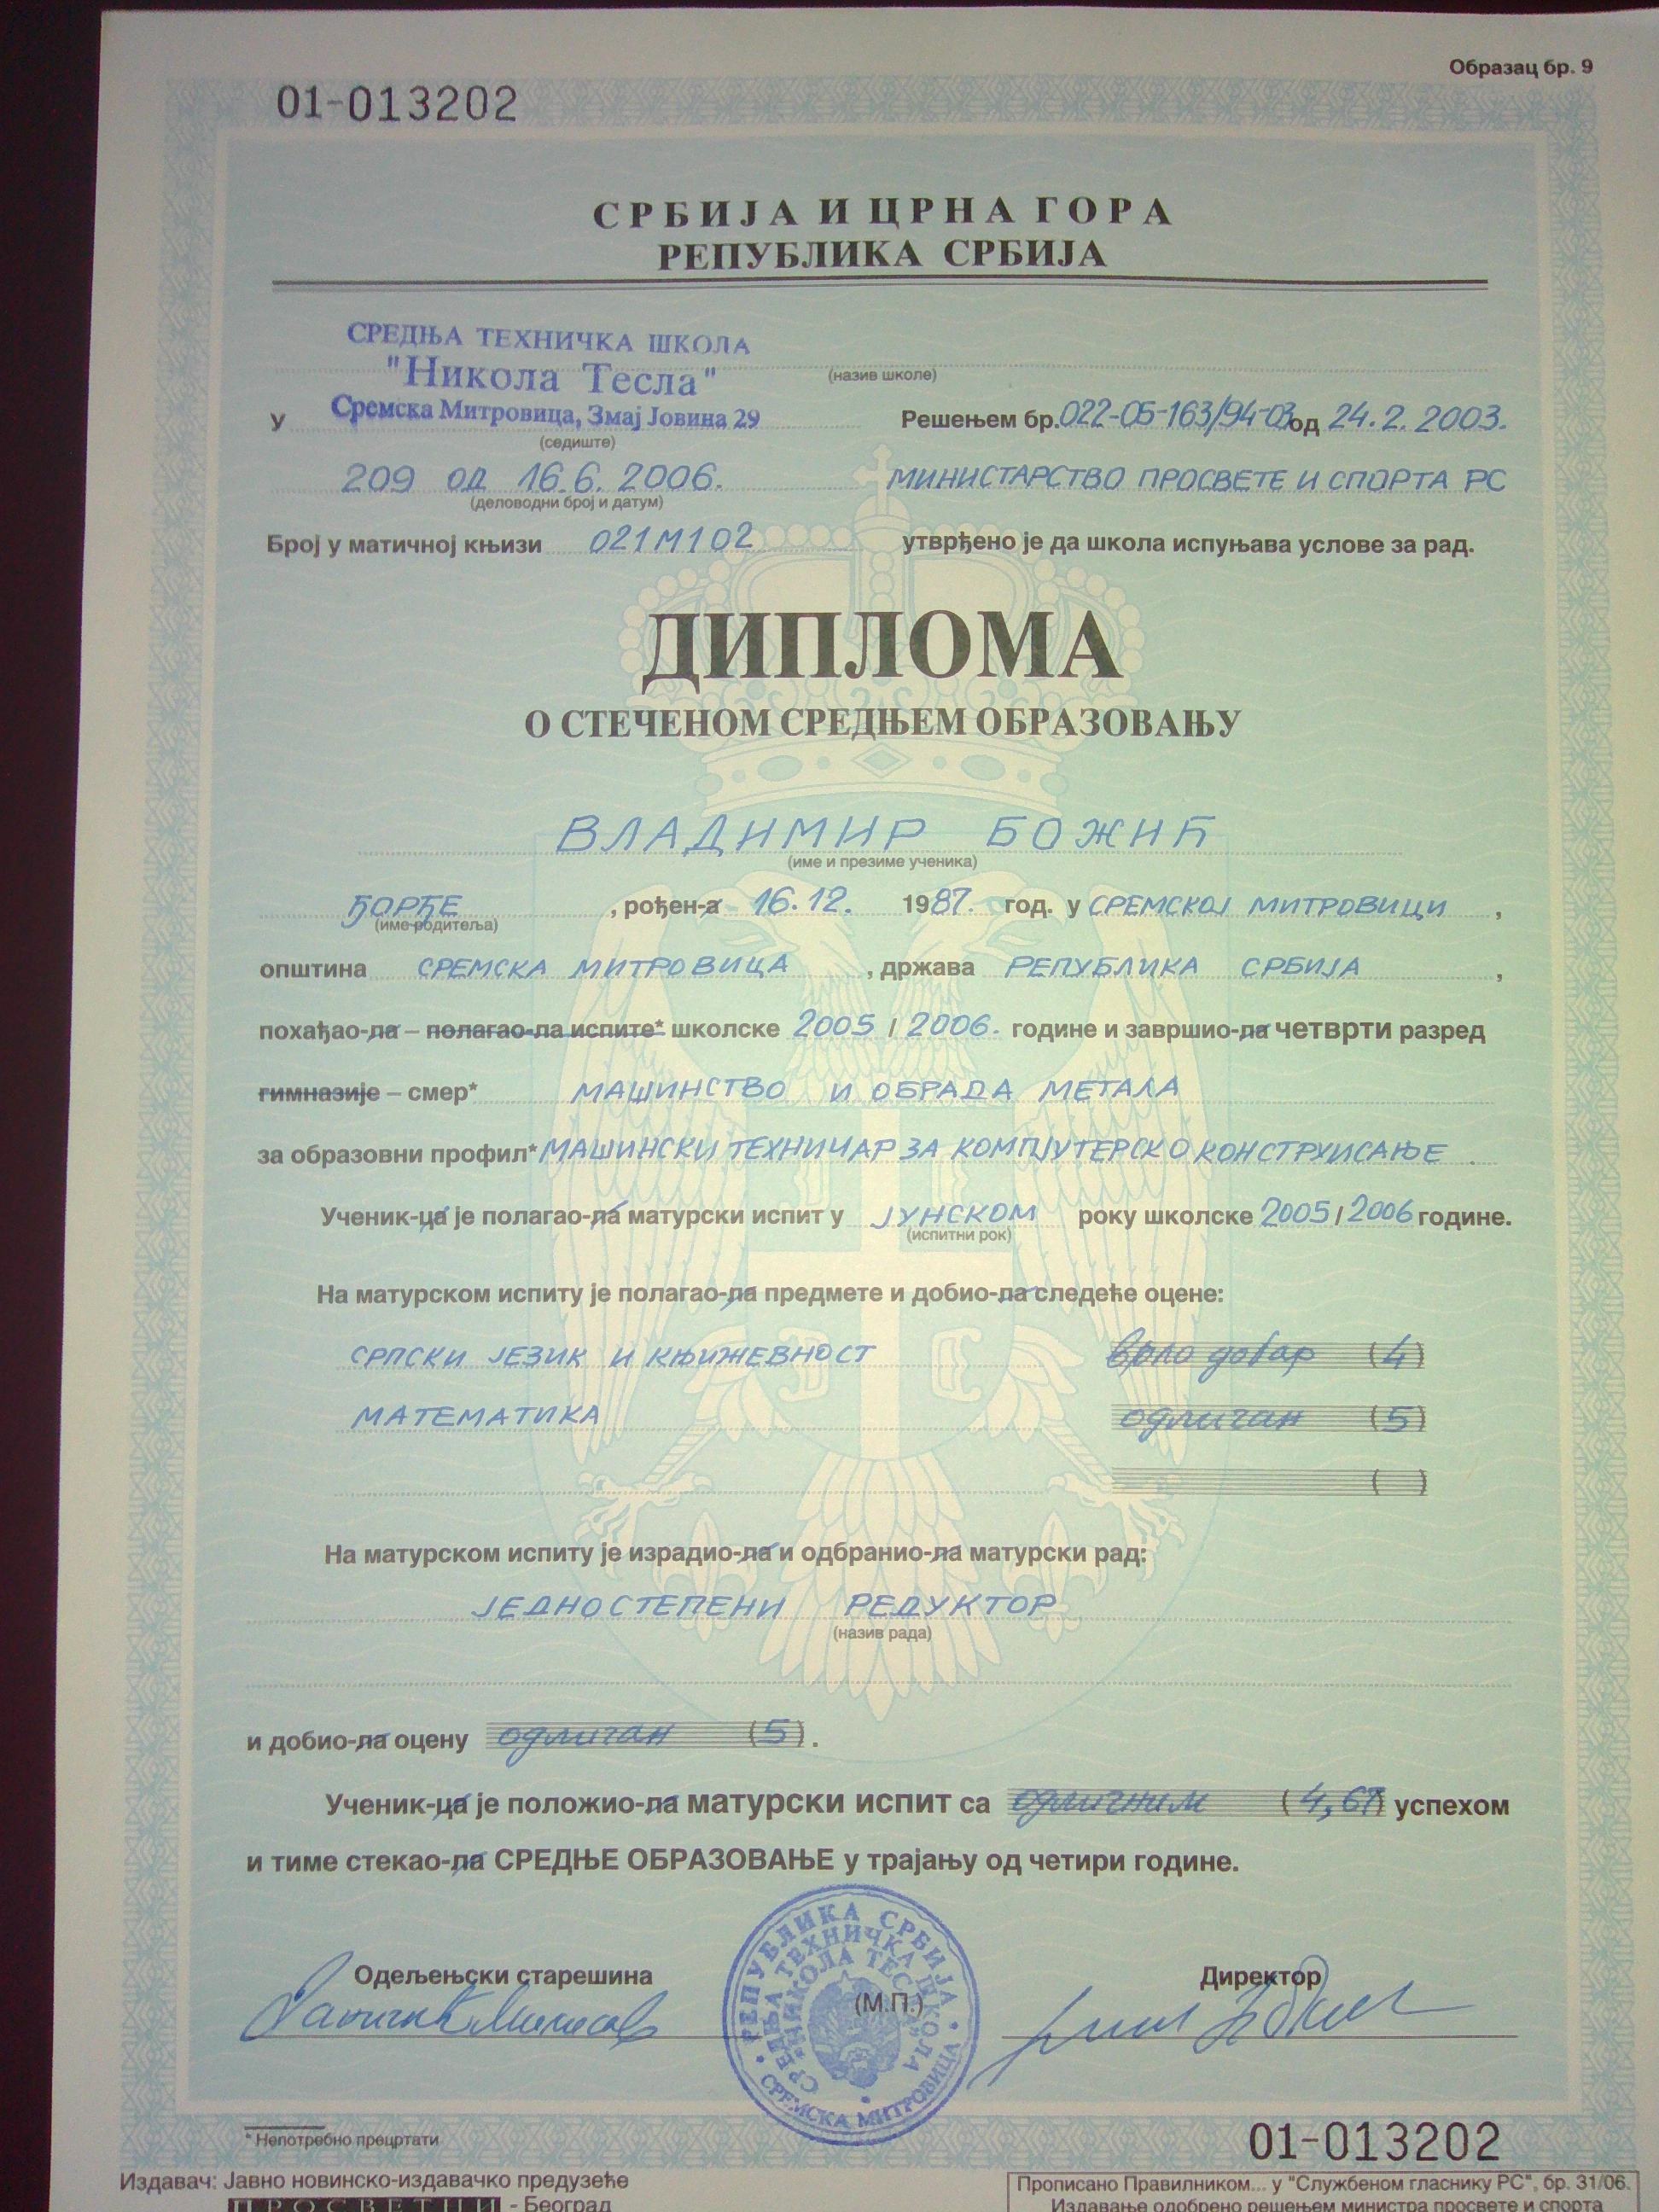 Образац бр. 9
01-013202
СРБИЈА И ЦРНА ГОРА
РЕПУБЛИКА СРБИЈА
СРЕДЊА ТЕХНИЧКА ШКОЛА
"Никола Тесла"
(назив школе)
У Сремска Митровица, Змај Јовина 29 Решењем бр. 022-05-163/94-03 од 24.2.2003.
(седиште)
209 од 16.6.2006. МИНИСТАРСТВО ПРОСВЕТЕ И СПОРТА РС
(деловодни број и датум)
Број у матичној књизи 021М102 утврђено је да школа испуњава услове за рад.
ДИПЛОМА
О СТЕЧЕНОМ СРЕДЊЕМ ОБРАЗОВАЊУ
ВЛАДИМИР БОЖИЋ
(име и презиме ученика)
ЂОРЂЕ , рођен-а 16.12. 1987. год. у СРЕМСКОЈ МИТРОВИЦИ ,
(име родитеља)
општина СРЕМСКА МИТРОВИЦА , држава РЕПУБЛИКА СРБИЈА ,
похађао-ла – полагао-ла испите* школске 2005 / 2006. године и завршио-ла четврти разред
гимназије – смер* МАШИНСТВО И ОБРАДА МЕТАЛА
за образовни профил* МАШИНСКИ ТЕХНИЧАР ЗА КОМПЈУТЕРСКО КОНСТРУИСАЊЕ .
Ученик-ца је полагао-ла матурски испит у ЈУНСКОМ року школске 2005 / 2006 године.
(испитни рок)
На матурском испиту је полагао-ла предмете и добио-ла следеће оцене:
СРПСКИ ЈЕЗИК И КЊИЖЕВНОСТ врло добар (4)
МАТЕМАТИКА одличан (5)
( )
На матурском испиту је израдио-ла и одбранио-ла матурски рад:
ЈЕДНОСТЕПЕНИ РЕДУКТОР
(назив рада)
и добио-ла оцену одличан (5).
Ученик-ца је положио-ла матурски испит са одличним (4,67) успехом
и тиме стекао-ла СРЕДЊЕ ОБРАЗОВАЊЕ у трајању од четири године.
РЕПУБЛИКА СРБИЈА
СРЕДЊА ТЕХНИЧКА ШКОЛА
"НИКОЛА ТЕСЛА"
СРЕМСКА МИТРОВИЦА
Одељењски старешина (М.П.) Директор
* Непотребно прецртати
01-013202
Издавач: Јавно новинско-издавачко предузеће
ПРОСВЕТНИ - Београд
Прописано Правилником... у "Службеном гласнику РС", бр. 31/06.
Издавање одобрено решењем министра просвете и спорта